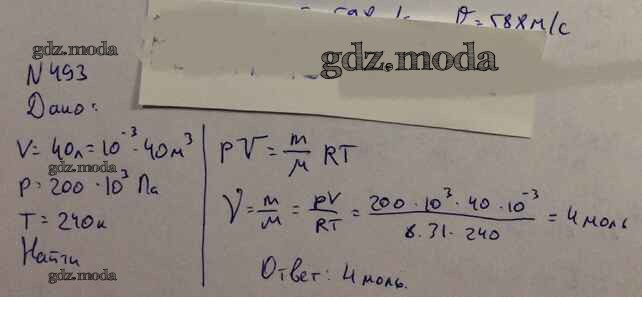 υ = 588 м/с
gdz.moda
gdz.moda
N 493
Дано:
V = 40л = 10⁻³ · 40 м³
gdz.moda
P = 200 · 10³ Па
T = 240к
Найти
gdz.moda
pV = m/μ RT
ν = m/M = pV/RT = 200 · 10³ · 40 · 10⁻³ / 8.31 · 240 = 4 моль
Ответ: 4 моль.